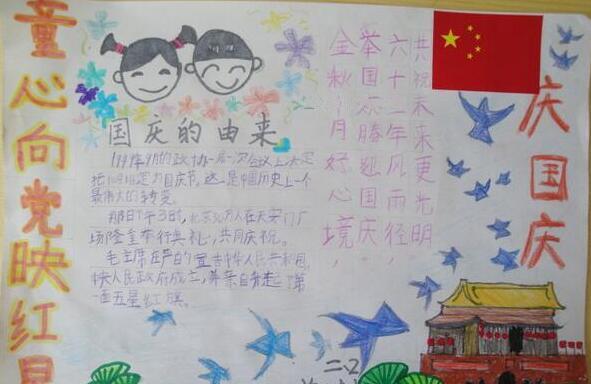 童心向党映红
国庆的由来
1949年9月的政协一届一次会议上决定
把10月1日定为国庆节,这一是中国历史上一个
最伟大的转变。
那日下午3时,北京30万人在天安门广
场隆重举行典礼,共同庆祝。
毛主席庄严的宣告中华人民共和国,
中央人民政府成立,并亲自升起了第
一面五星红旗。
金秋十月好心境,
举国欢腾迎国庆,
六十二年风雨径,
共祝未来更光明
庆国庆
二.2